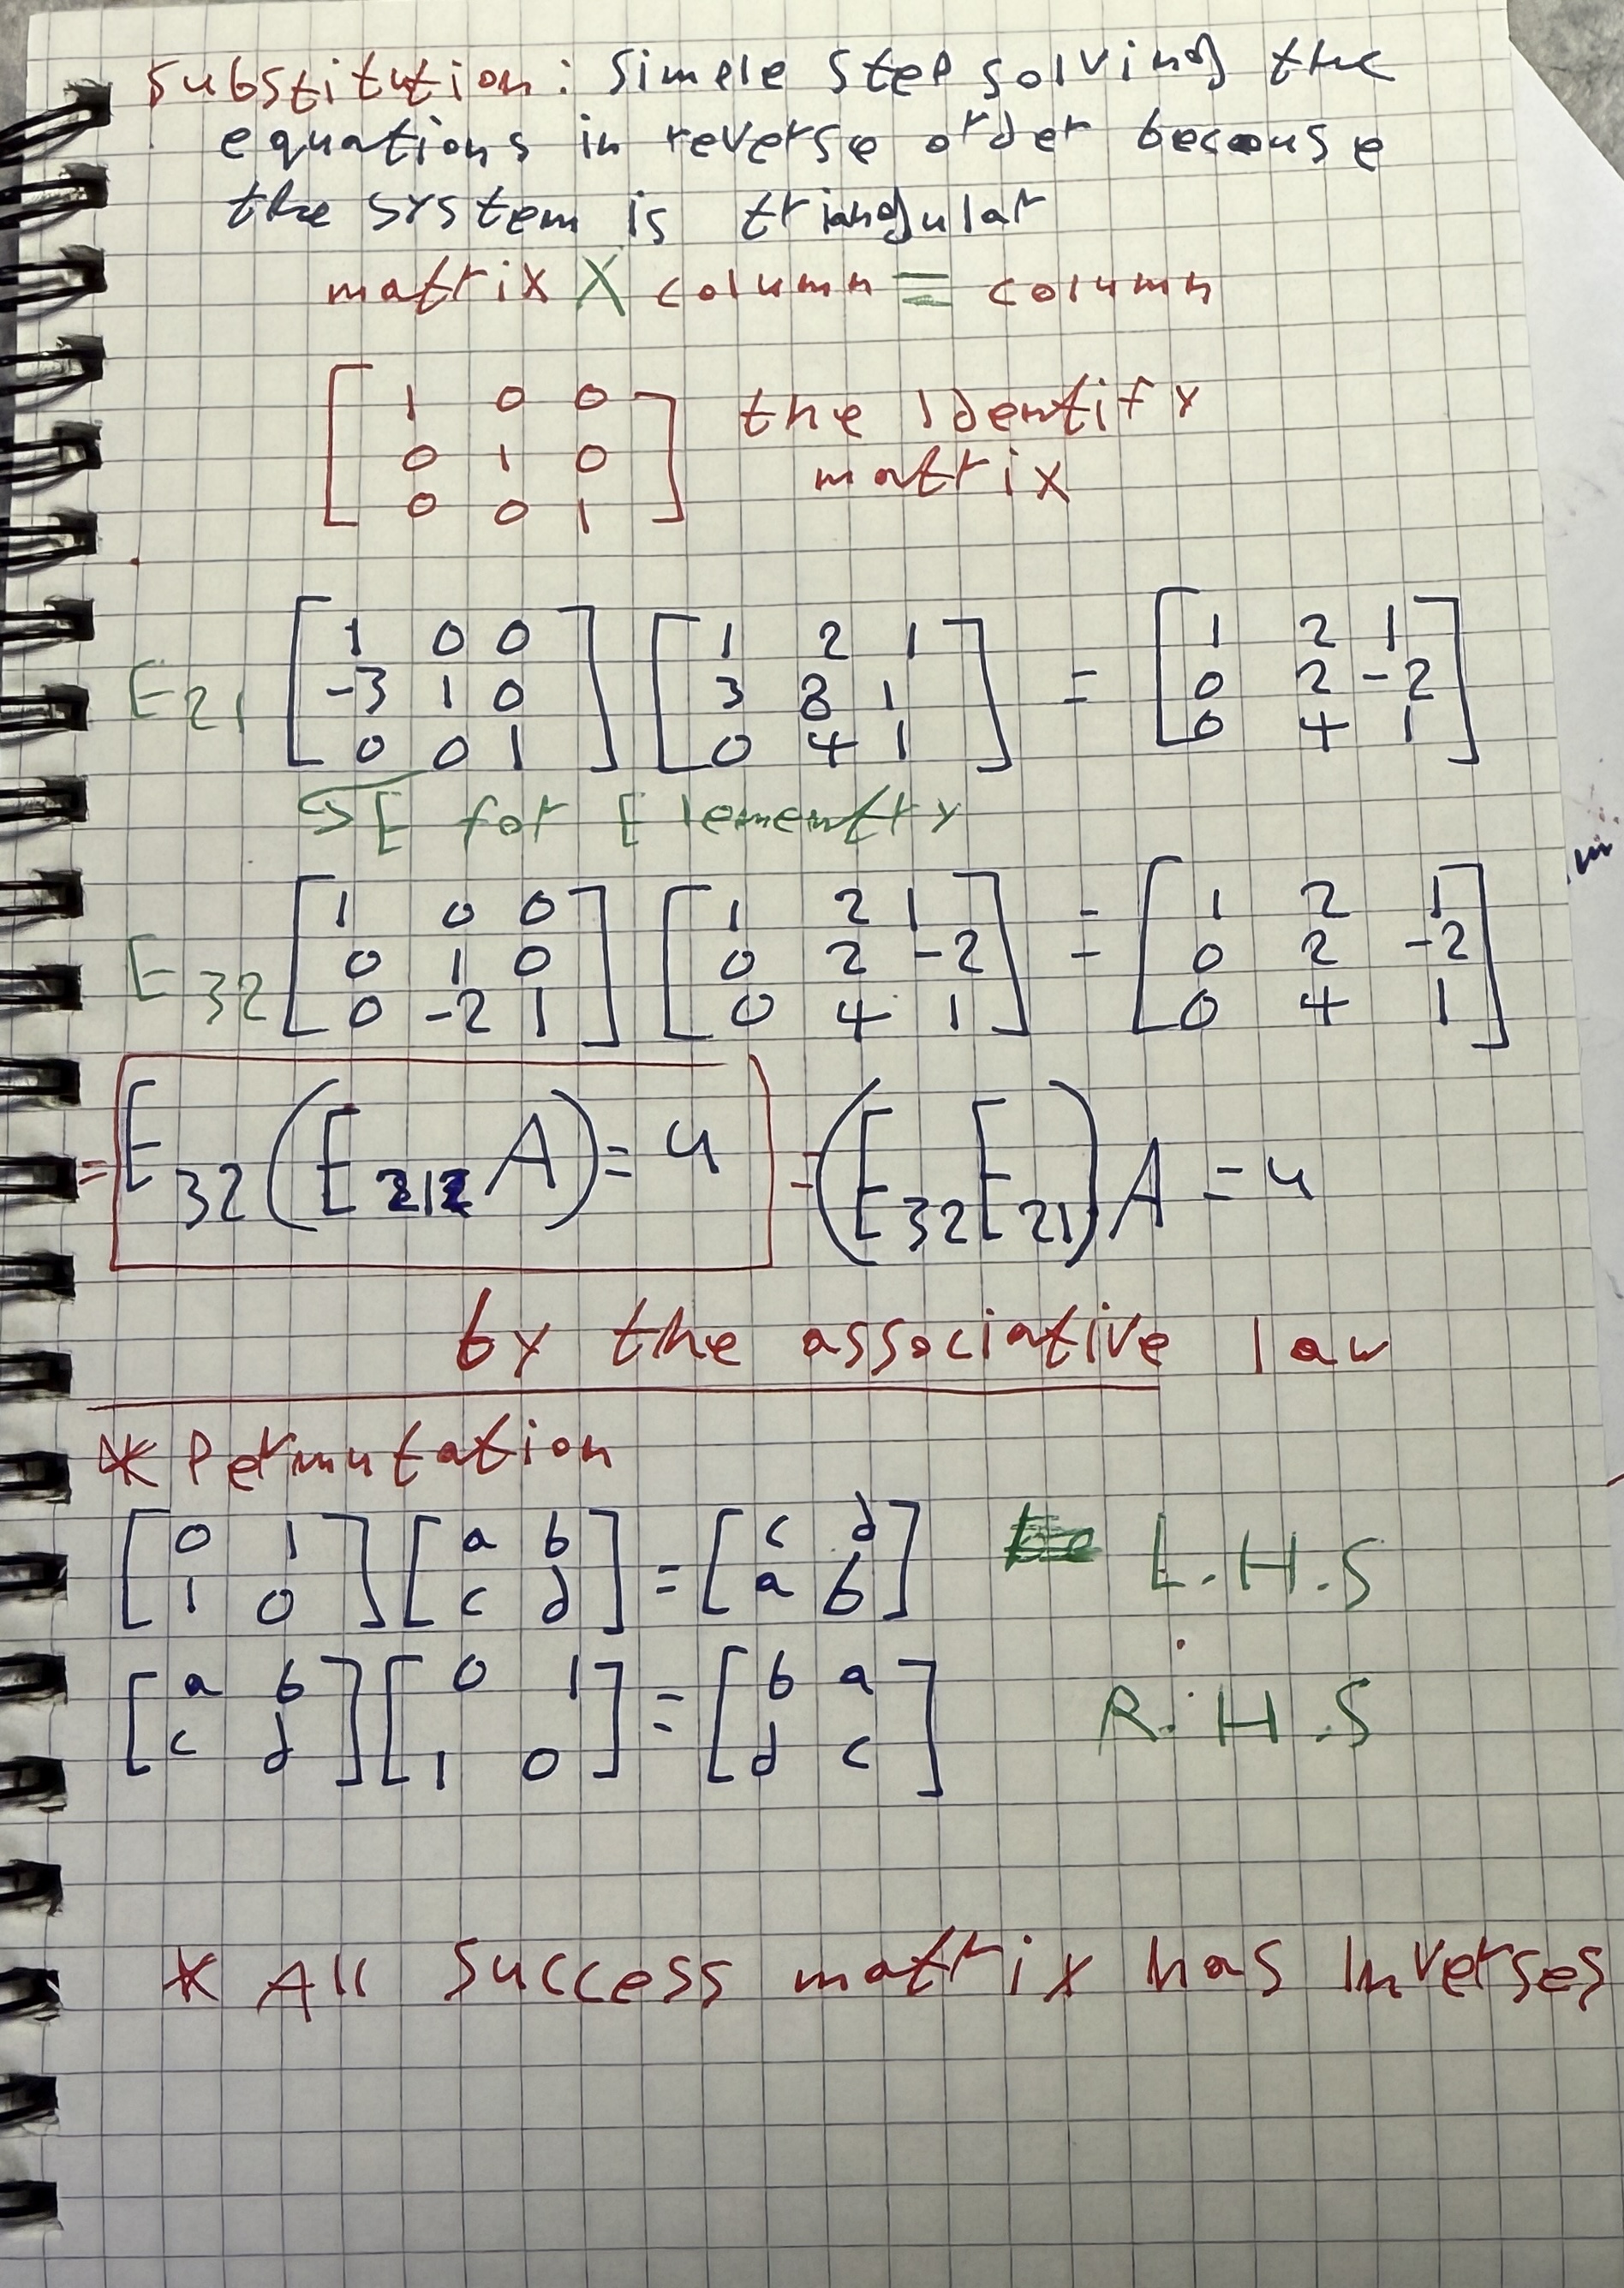 Substitution: Simple Step solving the
equations in reverse order because
the system is triangular
matrix X column = column
[1 0 0
0 1 0
0 0 1] the Identity
matrix
E21 [1 0 0
-3 1 0
0 0 1] [1 2 1
3 8 1
0 4 1] = [1 2 1
0 2 -2
0 4 1]
↪ E for Elementry
E32 [1 0 0
0 1 0
0 -2 1] [1 2 1
0 2 -2
0 4 1] = [1 2 1
0 2 -2
0 4 1]
= E32 (E21 A) = u = (E32 E21) A = u
by the associative law
* Permutation
[0 1
1 0] [a b
c d] = [c d
a b] L.H.S
[a b
c d] [0 1
1 0] = [b a
d c] R.H.S
* All success matrix has Inverses